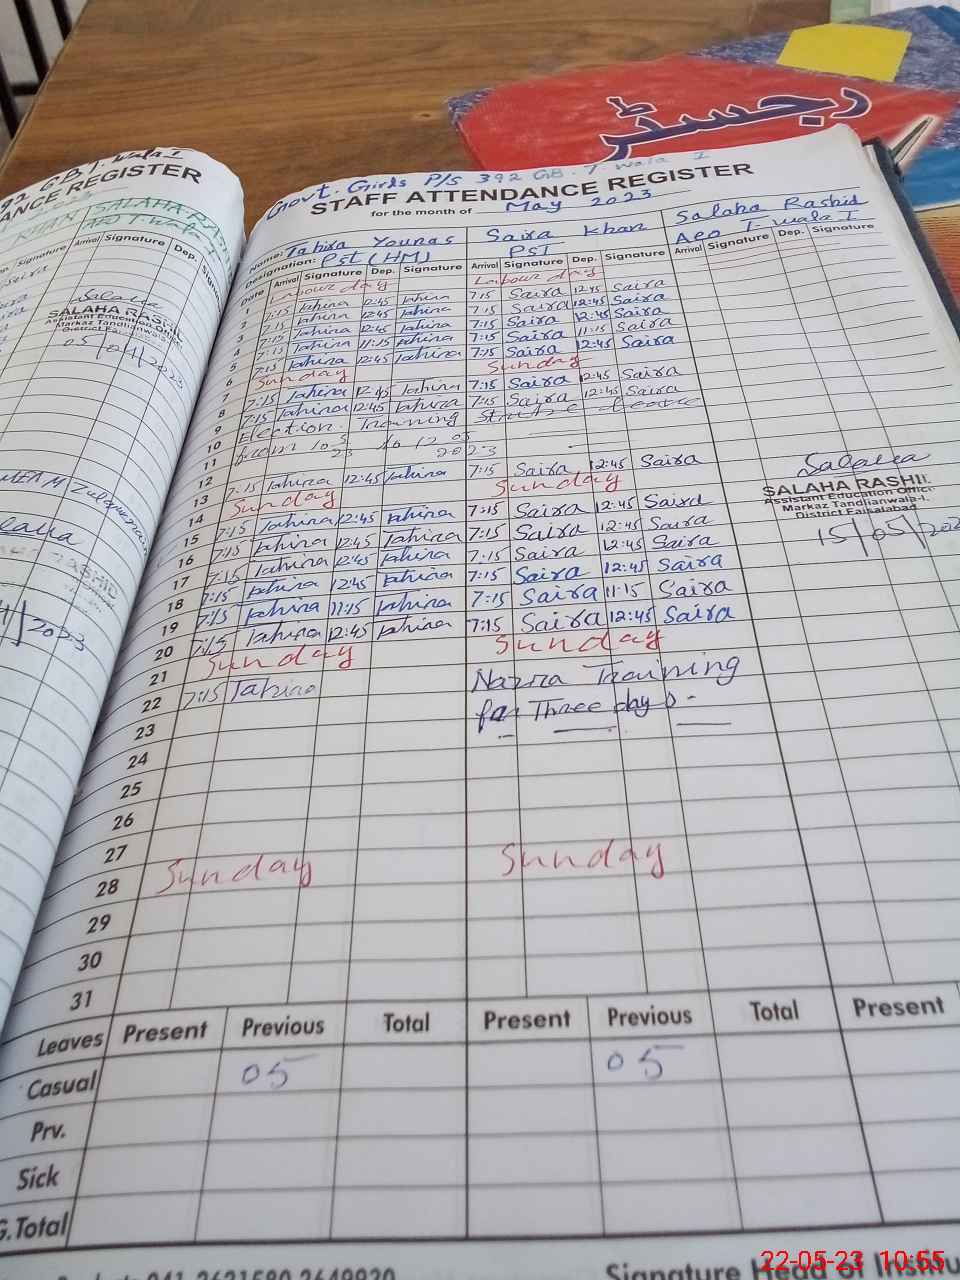 رجسٹر
Govt. Girls P/S 392 GB. T. Wala I
STAFF ATTENDANCE REGISTER
for the month of May 2023
Name: Tahira Younas Saira Khan Salaha Rashid
Designation: Pst (HM) PST Aeo T. wala I
Date Arrival Signature Dep. Signature Arrival Signature Dep. Signature Arrival Signature Dep. Signature
1 Labour day Labour day
2 7:15 Tahira 12:45 Tahira 7:15 Saira 12:45 Saira
3 7:15 Tahira 12:45 Tahira 7:15 Saira 12:45 Saira
4 7:15 Tahira 12:45 Tahira 7:15 Saira 12:45 Saira
5 7:15 Tahira 11:15 Tahira 7:15 Saira 11:15 Saira
6 7:15 Tahira 12:45 Tahira 7:15 Saira 12:45 Saira
7 Sunday Sunday
8 7:15 Tahira 12:45 Tahira 7:15 Saira 12:45 Saira
9 7:15 Tahira 12:45 Tahira 7:15 Saira 12:45 Saira
10 Election Training
11 from 10-5-23 to 12-05-2023
12
13 7:15 Tahira 12:45 Tahira 7:15 Saira 12:45 Saira
14 Sunday Sunday
15 7:15 Tahira 12:45 Tahira 7:15 Saira 12:45 Saira
16 7:15 Tahira 12:45 Tahira 7:15 Saira 12:45 Saira
17 7:15 Tahira 12:45 Tahira 7:15 Saira 12:45 Saira
18 7:15 Tahira 12:45 Tahira 7:15 Saira 12:45 Saira
19 7:15 Tahira 11:15 Tahira 7:15 Saira 11:15 Saira
20 7:15 Tahira 12:45 Tahira 7:15 Saira 12:45 Saira
21 Sunday Sunday
22 7:15 Tahira Nazra Training
23 for Three days
24
25
26
27
28 Sunday Sunday
29
30
31
Salaha
SALAHA RASHI
Assistant Education Officer
Markaz Tandlianwala-I
District Faisalabad
15/05/202
Leaves Present Previous Total Present Previous Total Present
Casual 05 05
Prv.
Sick
G.Total
Signature Head of Institu
22-05-23 10:55
92 GB T. Wala I
ANCE REGISTER
KHAN SALAHA RA
Arrival Signature Dep. Signature
Salaha
SALAHA RASHI
Assistant Education Officer
Markaz Tandlianwala
05/04/2023
2023